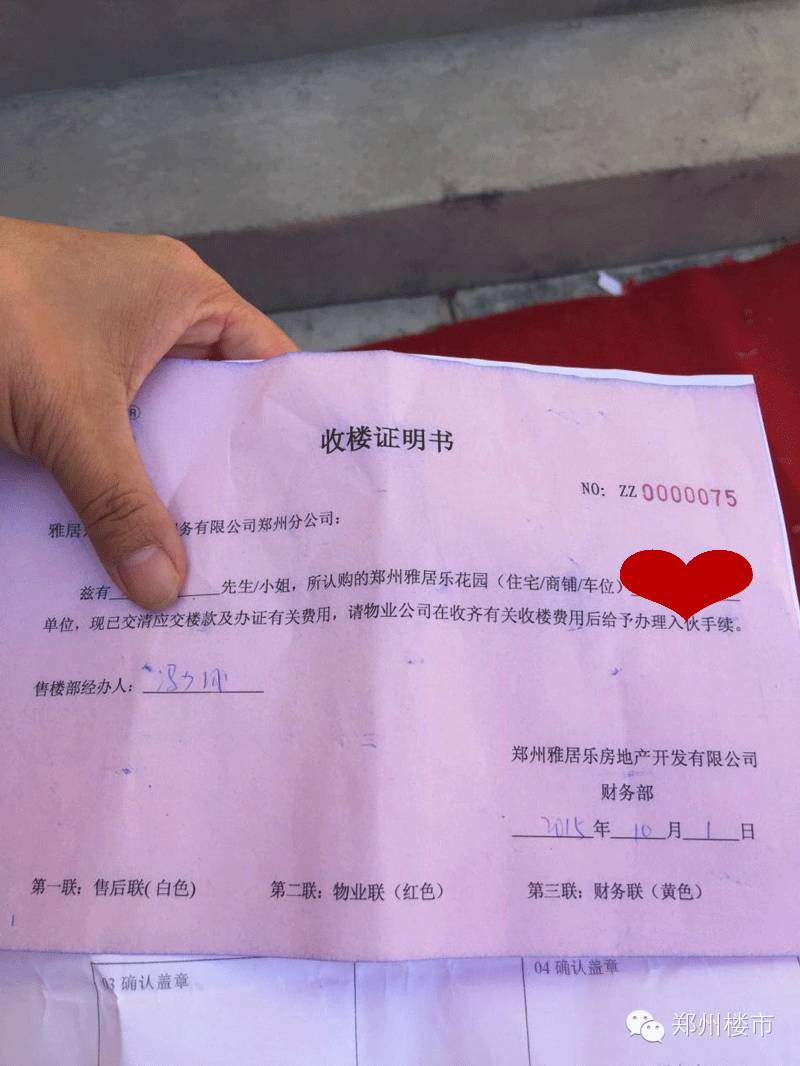 ®
收楼证明书
NO: ZZ 0000075
雅居 务有限公司郑州分公司：
兹有 先生/小姐，所认购的郑州雅居乐花园（住宅/商铺/车位）
单位，现已交清应交楼款及办证有关费用，请物业公司在收齐有关收楼费用后给予办理入伙手续。
售楼部经办人：
郑州雅居乐房地产开发有限公司
财务部
2015年10月1日
第一联：售后联(白色) 第二联：物业联（红色） 第三联：财务联（黄色）
03 确认盖章 04 确认盖章
郑州楼市